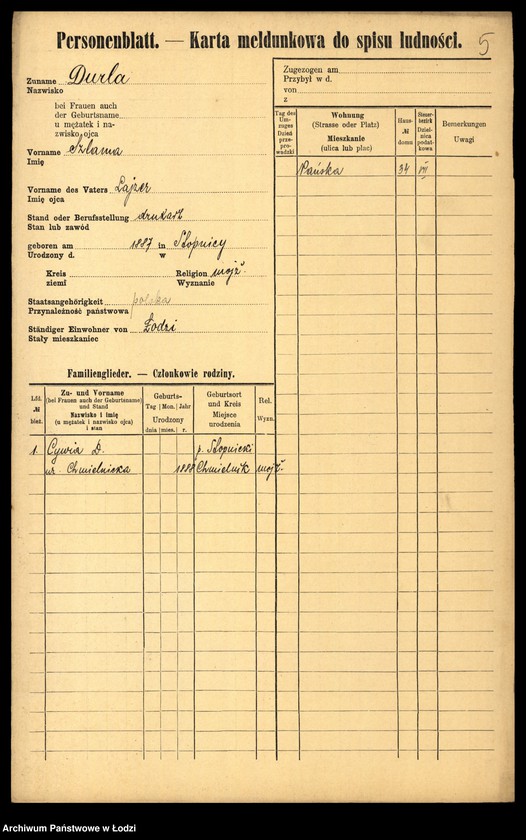 Personenblatt. — Karta meldunkowa do spisu ludności.
5
Zuname Durla
Nazwisko
bei Frauen auch
der Geburtsname
u mężatek i na-
zwisko ojca
Vorname Szlama
Imię
Vorname des Vaters Lajzer
Imię ojca
Stand oder Berufsstellung drukarz
Stan lub zawód
geboren am 1887 in Stopnicy
Urodzony d. w
Kreis Religion mojż.
ziemi Wyznanie
Staatsangehörigkeit polska
Przynależność państwowa
Ständiger Einwohner von Łodzi
Stały mieszkaniec
Zugezogen am
Przybył w d.
von
z
Tag des Um-zuges Dzień prze-prowadzki
Wohnung
(Strasse oder Platz)
Mieszkanie
(ulica lub plac)
Haus-№ domu
Steuer-bezirk Dziel-nica podat-kowa
Bemerkungen
Uwagi
Pańska 34 VII
Familienglieder. — Członkowie rodziny.
Lfd. № bież.
Zu- und Vorname
(bei Frauen auch der Geburtsname)
und Stand
Nazwisko i imię
(u mężatek i nazwisko ojca)
i stan
Geburts-
Tag Mon. Jahr
Urodzony
dnia mies. r.
Geburtsort
und Kreis
Miejsce
urodzenia
Rel.
Wyzn.
1. Cywia D. p. Stopnicki
ur. Chmielnicka 1888 Chmielnik mojż.
Archiwum Państwowe w Łodzi